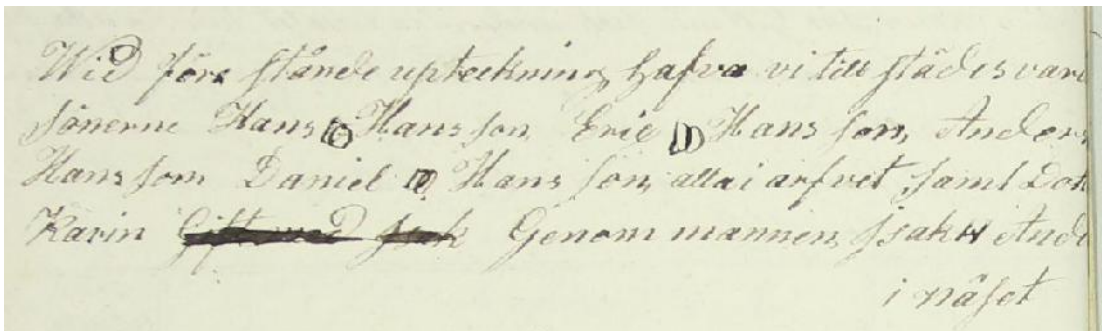 Wid före stånde upteckning hafva vi till städes vari
sönerne Hans Hansson, Eric Hans son, Anders
Hans som Daniel Hans son, alla i arfvet saml Dot
Karin Gift med Isak Genom mannen Isak Ande
i näset